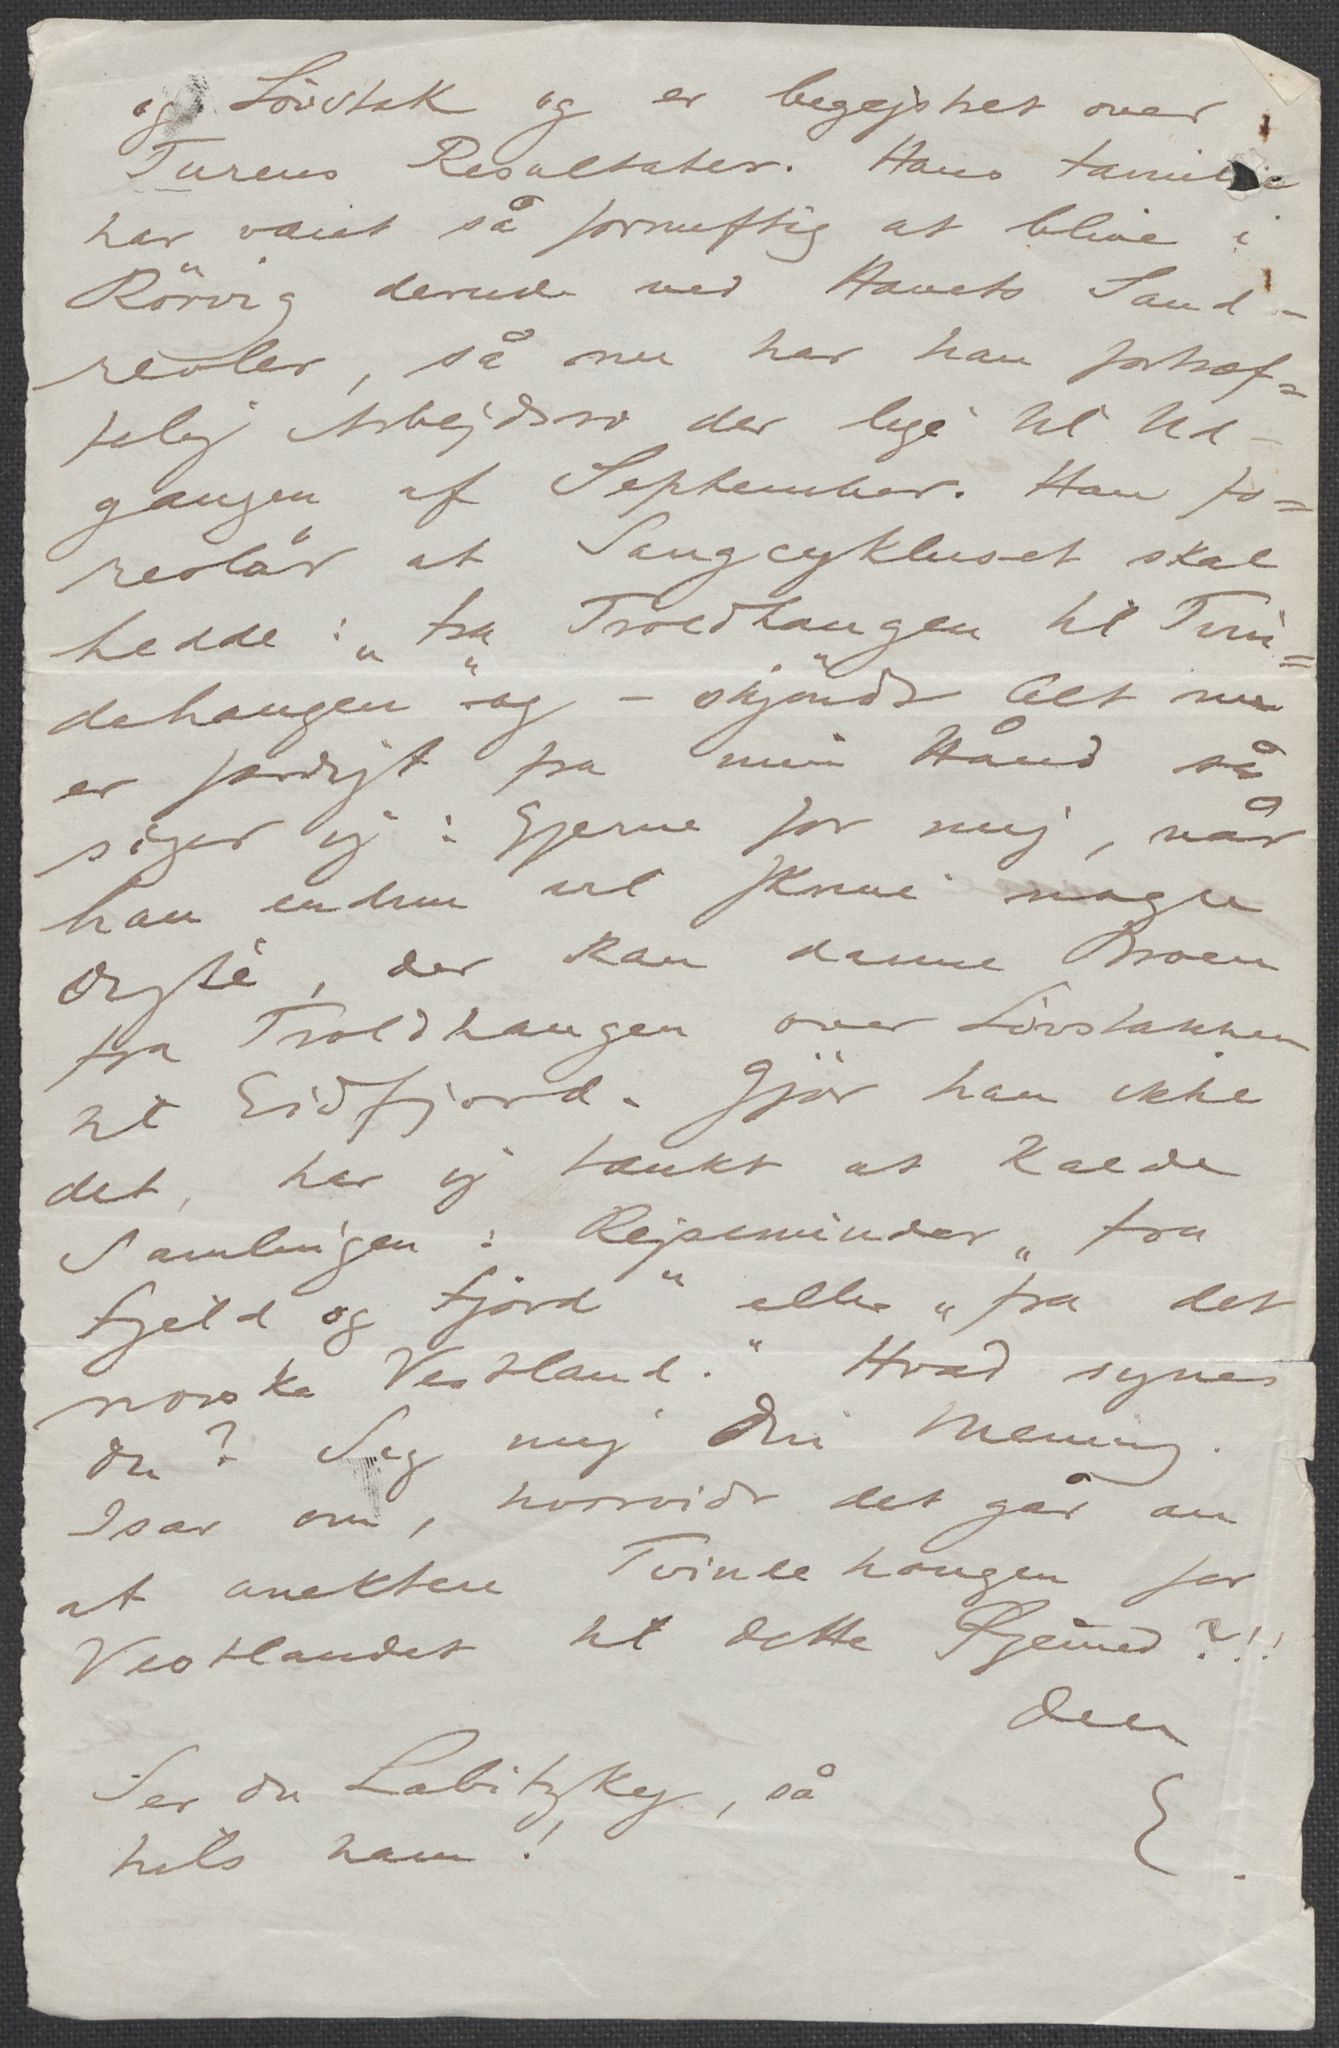 og Lövstak og er begejstret over
Turens Resultater. Hans Familie
har været så fornuftig at blive i
Rörvig derude ved Havets Sand-
revler, så nu har han fortræf=
felig Arbejdsro der lige til Ud-
gangen af September. Han fo=
reslår at Sangcykluset skal
hedde: „Fra Troldhaugen til Tvin=
dehaugen" og – skjöndt Alt nu
er færdigt fra min Hånd så
siger jeg: Gjerne for mig, når
han endnu vil skrive nogle
Digte, der kan danne Broen
fra Troldhaugen over Lövstakken
til Eidfjord. Gjör han ikke
det, har jeg tænkt at kalde
Samlingen: Rejseminder „fra
Fjeld og Fjord" eller „fra det
norske Vestland." Hvad synes
du? Sig mig Din Mening.
Især om, hvorvidt det går an
at anektere Tvindehougen for
Vestlandet til dette Øjemed?!!
Din
Ser du Labitzky, så
hils ham!
E.